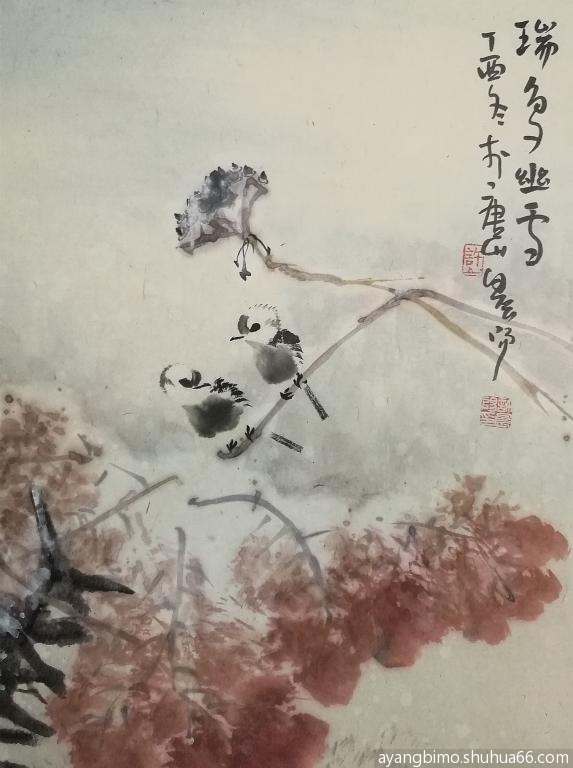 瑞鸟幽雪
丁酉冬 於唐山
ayangbimo.shuhua66.com